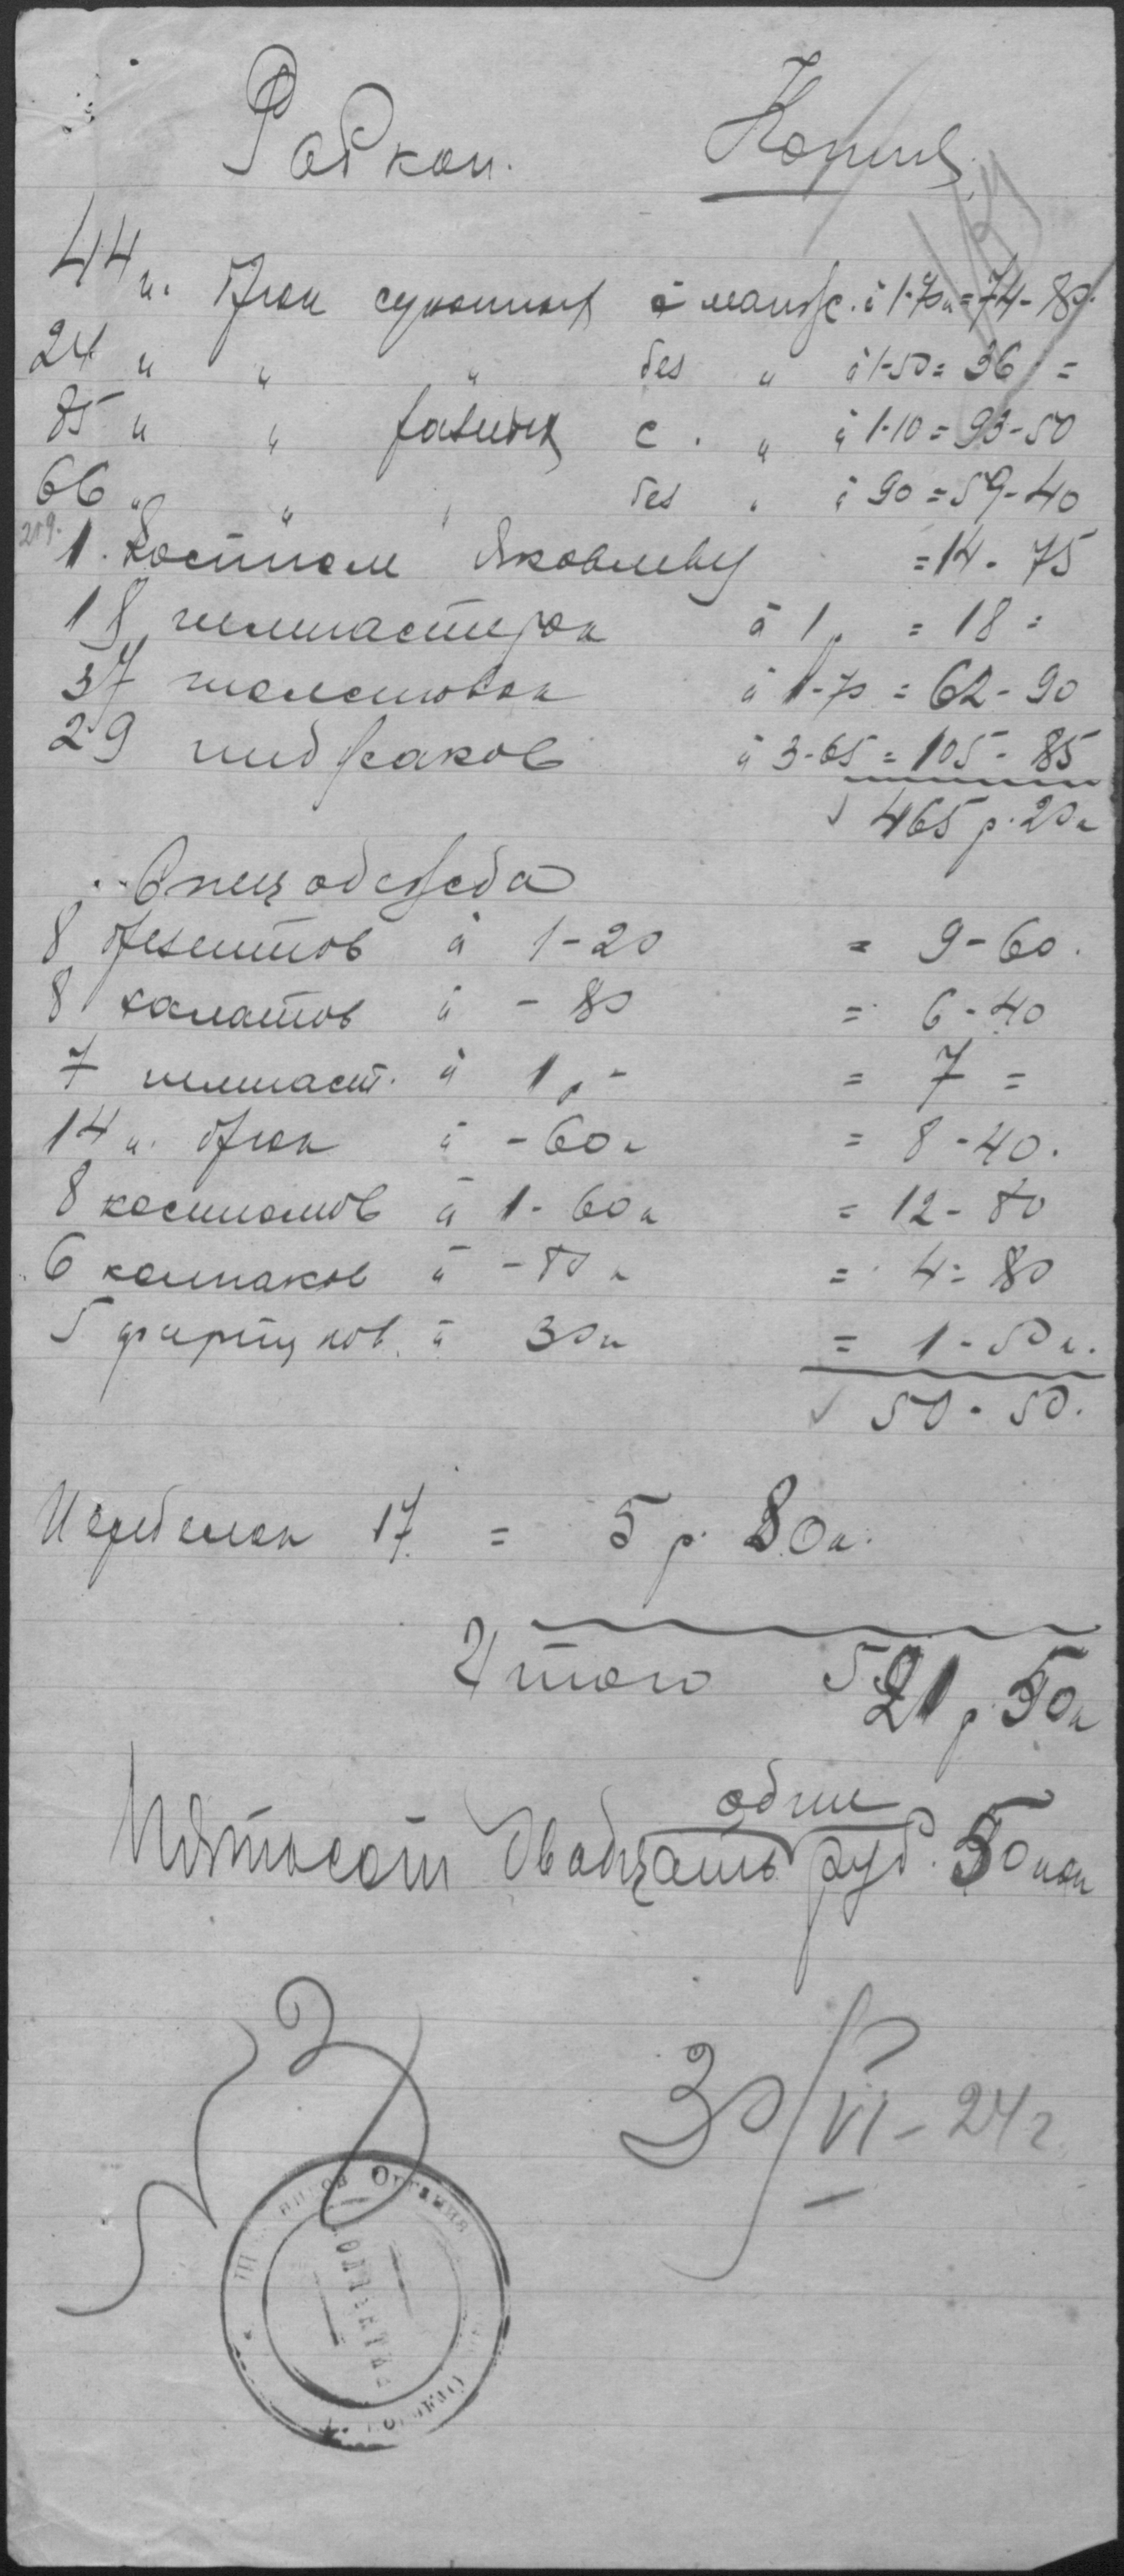 Рабкоп. Копия
44 п. Брюк суконных с манж. à 1-70к = 74-80
24 " " " без " à 1-50 = 36 =
85 " " " с. " à 1-10 = 93-50
66 " " без " à 90 = 59-40
219.
1. Костюм Яковлеву = 14-75
18 гимнастерок à 1р = 18 =
37 толстовок à 1-70 = 62-90
29 пиджаков à 3-65 = 105-85
465 р. 20к
Спецодежда
8 брезентов à 1-20 = 9-60.
8 халатов à - 80 = 6-40
7 гимнаст. à 1р - = 7 =
14 п. брюк à - 60к = 8-40.
8 костюмов à 1-60к = 12-80
6 колпаков à - 80к = 4-80
5 фартуков à 30к = 1-50к.
50-50.
17 = 5 р. 80к.
Итого 521 р. 50к
один
Пятьсот двадцать руб. 50 коп
30/VI-24г.